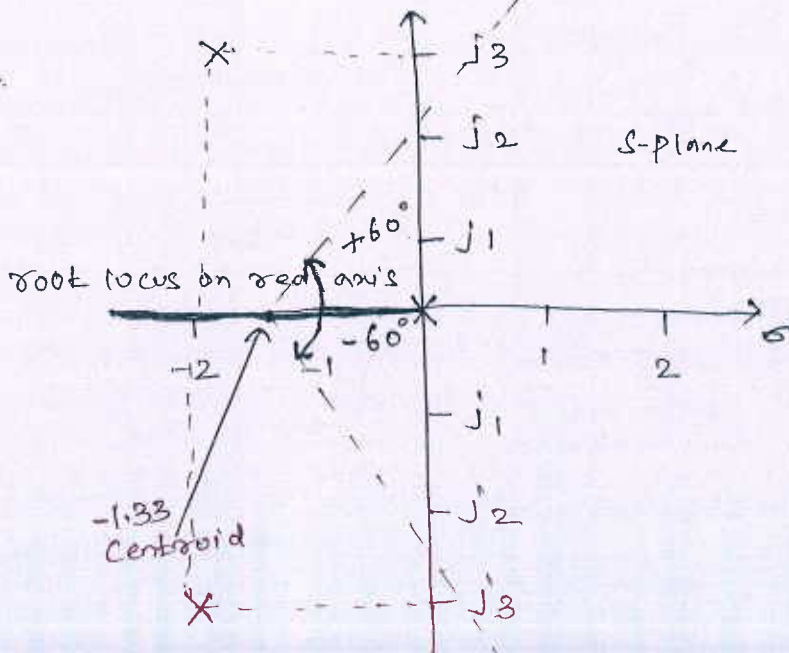 j3
j2
S-plane
+60°
j1
root locus on real axis
-60°
σ
-12
-1
1
2
j1
-1.33
Centroid
j2
j3